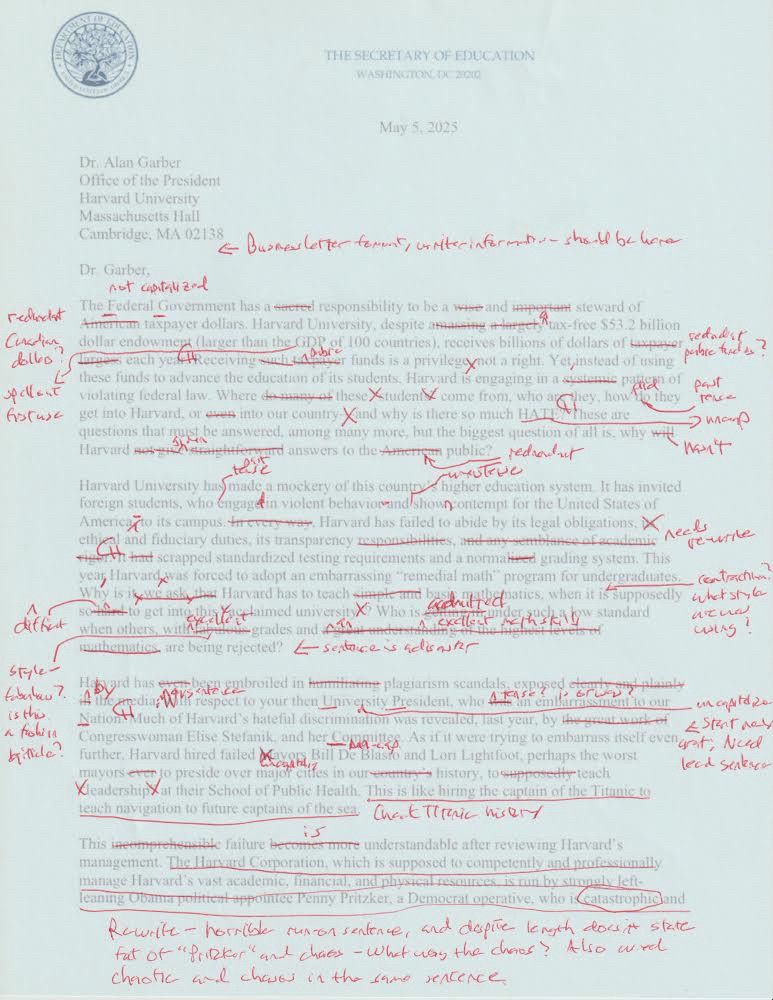 DEPARTMENT OF EDUCATION
UNITED STATES OF AMERICA
THE SECRETARY OF EDUCATION
WASHINGTON, DC 20202
May 5, 2025
Dr. Alan Garber
Office of the President
Harvard University
Massachusetts Hall
Cambridge, MA 02138
← Business letter format, writer information – should be here
Dr. Garber,
not capitalized
The Federal Government has a sacred responsibility to be a wise and important steward of
American taxpayer dollars. Harvard University, despite amassing a largely tax-free $53.2 billion
dollar endowment (larger than the GDP of 100 countries), receives billions of dollars of taxpayer
largess each year. Receiving such taxpayer funds is a privilege, not a right. Yet instead of using
these funds to advance the education of its students, Harvard is engaging in a systemic pattern of
violating federal law. Where do many of these students come from, who are they, how do they
get into Harvard, or even into our country and why is there so much HATE? These are
questions that must be answered, among many more, but the biggest question of all is, why will
Harvard not give straightforward answers to the American public?
redundant
Canadian
dollars?
spell out
first use
public
redundant
public funds?
did
past
tense
uncap
Hasn't
given
redundant
Harvard University has made a mockery of this country's higher education system. It has invited
foreign students, who engage in violent behavior and show contempt for the United States of
America, to its campus. In every way, Harvard has failed to abide by its legal obligations, its
ethical and fiduciary duties, its transparency responsibilities, and any semblance of academic
rigor. It had scrapped standardized testing requirements and a normalized grading system. This
year Harvard was forced to adopt an embarrassing "remedial math" program for undergraduates.
Why is it, we ask, that Harvard has to teach simple and basic mathematics, when it is supposedly
so hard to get into this acclaimed university? Who is getting in under such a low standard
when others, with fabulous grades and a great understanding of the highest levels of
mathematics, are being rejected?
← sentence is a disaster
tense
needs
re-write
contraction?
what style
are we
using?
difficult
admitted
excellent
excellent math skills
style –
fabulous?
is this
a fashion
article?
Harvard has even been embroiled in humiliating plagiarism scandals, exposed clearly and plainly
in the media, with respect to your then University President, who is an embarrassment to our
Nation. Much of Harvard's hateful discrimination was revealed, last year, by the great work of
Congresswoman Elise Stefanik, and her Committee. As if it were trying to embarrass itself even
further, Harvard hired failed Mayors Bill De Blasio and Lori Lightfoot, perhaps the worst
mayors ever to preside over major cities in our country's history, to supposedly teach
"leadership" at their School of Public Health. This is like hiring the captain of the Titanic to
teach navigation to future captains of the sea.
by
tense? is or was?
uncapitalize
uncapitalize
Check Titanic history
This incomprehensible failure becomes more understandable after reviewing Harvard's
is
management. The Harvard Corporation, which is supposed to competently and professionally
manage Harvard's vast academic, financial, and physical resources, is run by strongly left-
leaning Obama political appointee Penny Pritzker, a Democrat operative, who is catastrophic and
Rewrite – horrible run-on sentence, and despite length doesn't state
fat of "Pritzker" and chaos – What was the chaos? Also used
chaotic and chaos in the same sentence.